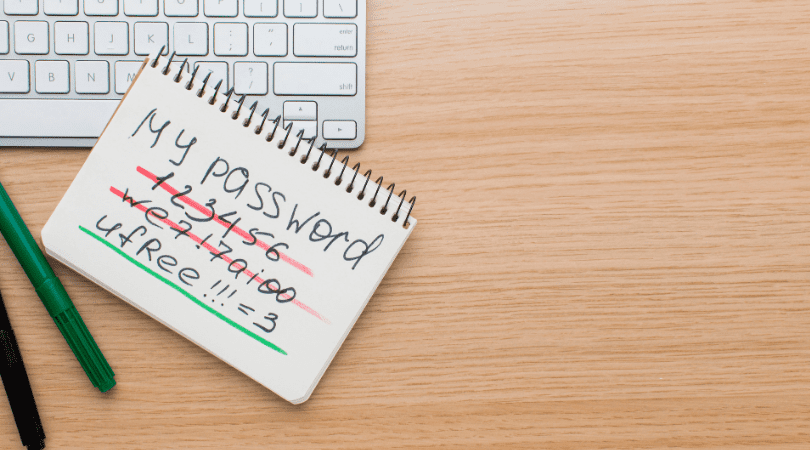 G H J K L : ; " '
enter return
V B N M ? / shift
My password
123456
we7!7aioo
ufRee!!!=3